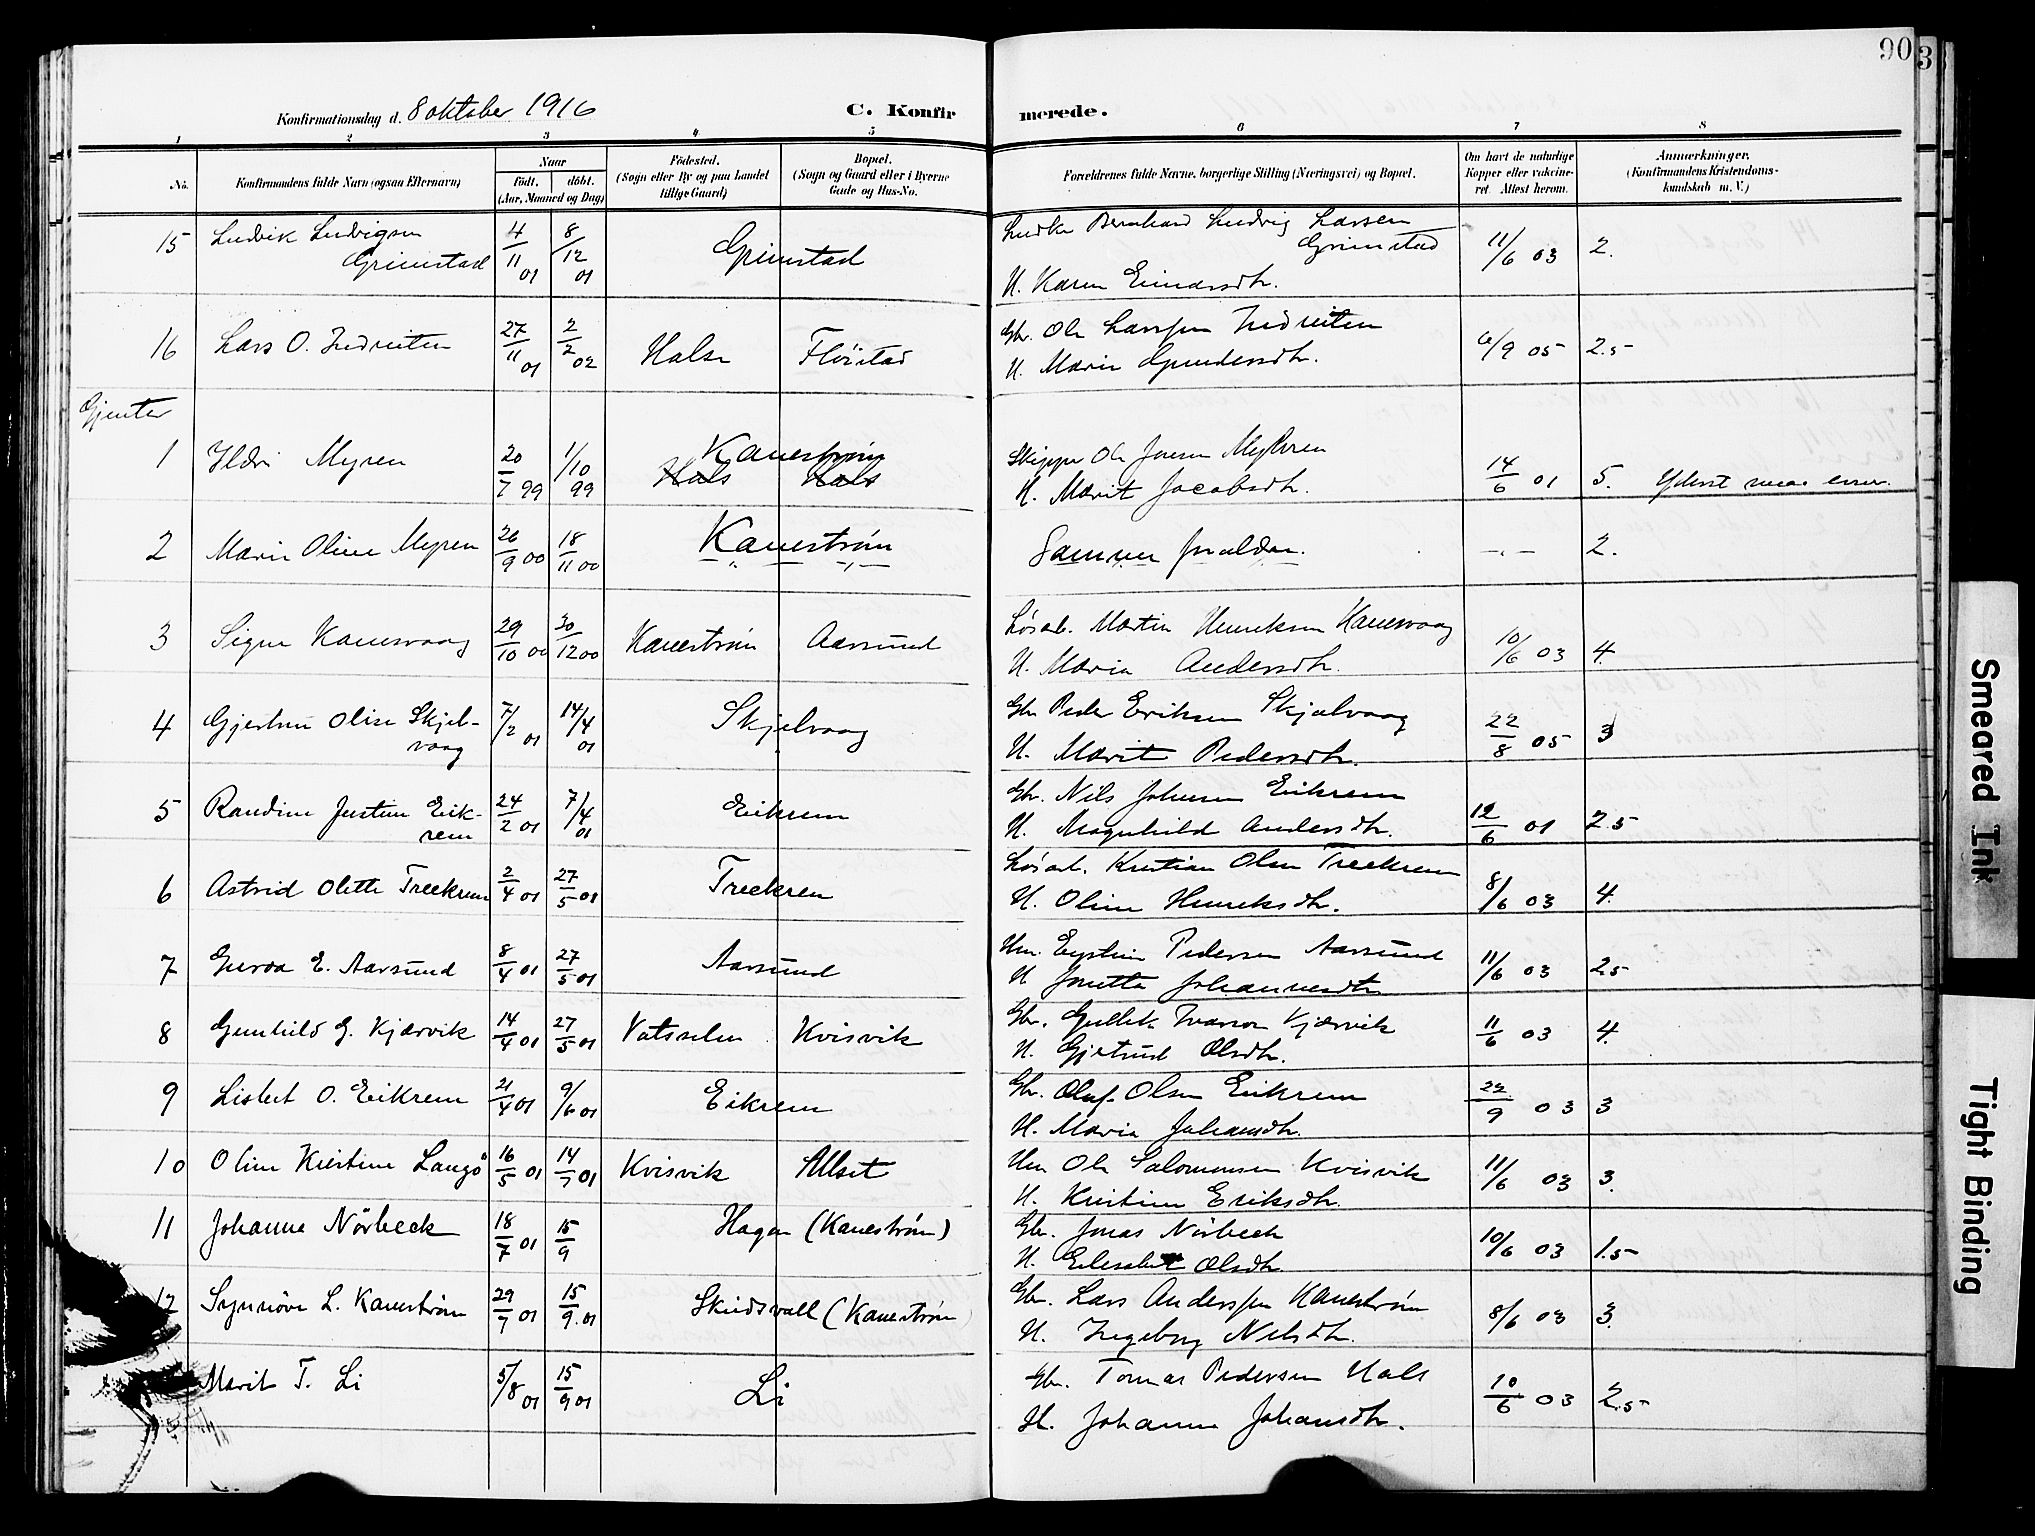 90
3
Konfirmationsdag d. 8 oktober 1916
C. Konfirmerede.
1 2 3 4 5 6 7 8
No.
Konfirmandens fulde Navn (ogsaa Efternavn)
Naar
født. døbt.
(Aar, Maaned og Dag)
Fødested.
(Sogn eller By og paa Landet
tillige Gaard)
Bopæl.
(Sogn og Gaard eller i Byerne
Gade og Hus-No.
Forældrenes fulde Navne, borgerlige Stilling (Næringsvei) og Bopæl.
Om havt de naturlige
Kopper eller vakcine-
ret. Attest herom.
Anmærkninger.
(Konfirmandens Kristendoms-
kundskab m. V.)
15 Ludvik Ludvigsen Grimstad 4/11 01 8/12 01 Grimstad Bernhard Ludvig Larsen Grimstad 11/6 03 2.
H. Karen Einarsdtr.
16 Lars O. Indreiten 27/11 01 2/2 02 Halse Fløistad Gbr. Ole Larssen Indreiten 6/9 05 2.5
H. Marie Gundersdtr.
Gjenter
1 Ildri Myren 20/7 99 1/10 99 Kanestrøm Hals Hals Skipper Ole Jonsen Myren 14/6 01 5.
H. Marit Jacobsdtr.
2 Marie Oline Myren 26/9 00 18/11 00 Kanestrøm Samme foreldre. -"- 2.
3 Signe Kanesvaag 29/10 00 30/12 00 Kanestrøm Aarsund Løsarb. Martin Henriksen Kanesvaag 10/6 03 4.
H. Maria Andersdtr.
4 Gjertrud Olise Skjel-
vaag 7/2 01 14/4 01 Skjelvaag Gbr Peder Eriksen Skjelvaag 22/8 05 3
H. Marit Pedersdtr.
5 Randine Justine Eik-
rem 24/2 01 7/4 01 Eikrem Gbr. Nils Johnsen Eikrem 12/6 01 2.5
H. Magnhild Andersdtr.
6 Astrid Olette Treekrem 2/4 01 27/5 01 Treekrem Løsarb. Kristian Olsen Treekrem 8/6 03 4.
H. Oline Henriksdtr.
7 Gurva E. Aarsund 8/4 01 27/5 01 Aarsund Hm. Eystein Pedersen Aarsund 11/6 03 2.5
H Jonetta Johannesdtr
8 Gunhild G. Kjærvik 14/4 01 27/5 01 Vatsselen Kvisvik Gbr. Gullik Ivarson Kjærvik 11/6 03 4.
H. Gjertrud Olsdtr.
9 Lisbet O. Eikrem 21/4 01 9/6 01 Eikrem Gbr. Oluf Olsen Eikrem 22/9 03 3
H. Maria Johansdtr.
10 Oline Kristine Langø 16/5 01 14/7 01 Kvisvik Allset Hm Ole Salomonsen Kvisvik 11/6 03 3.
H. Kristine Eriksdtr.
11 Johanna Nørbeck 18/7 01 15/9 Hagen (Kanestrøm) Gbr. Jonas Nørbeck 10/6 03 1.5
H. Elisabet Olsdtr
12 Synnøve L. Kanestrøm 29/7 01 15/9 01 Skudsvall (Kanestrøm Gbr. Lars Anderssen Kanestrøm 8/6 03 3.
H. Ingeborg Nilsdtr.
Marit T. Li 5/8 01 15/9 01 Li Gbr. Tomas Pedersen Hals 10/6 03 2.5
H. Johanne Johansdtr.
Smeared Ink
Tight Binding